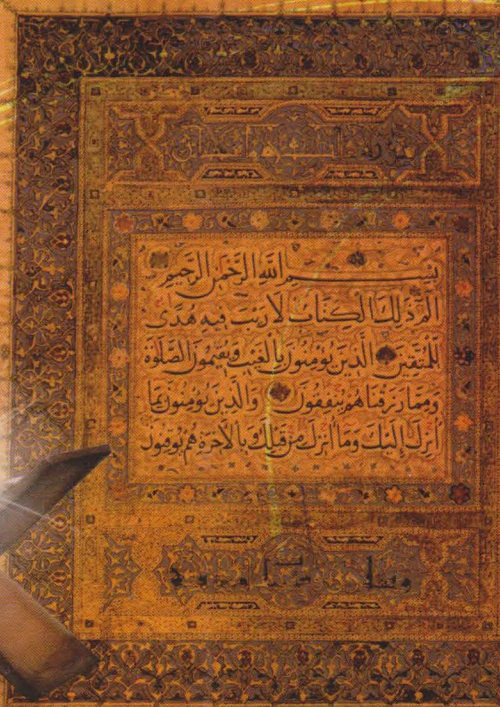 بِسْمِ اللَّهِ الرَّحْمَٰنِ الرَّحِيمِ
الم ذَٰلِكَ الْكِتَابُ لَا رَيْبَ فِيهِ هُدًى
لِّلْمُتَّقِينَ الَّذِينَ يُؤْمِنُونَ بِالْغَيْبِ وَيُقِيمُونَ الصَّلَوٰةَ
وَمِمَّا رَزَقْنَاهُمْ يُنْفِقُونَ وَالَّذِينَ يُؤْمِنُونَ بِمَا
أُنْزِلَ إِلَيْكَ وَمَا أُنْزِلَ مِنْ قَبْلِكَ وَبِالْآخِرَةِ هُمْ يُوقِنُونَ